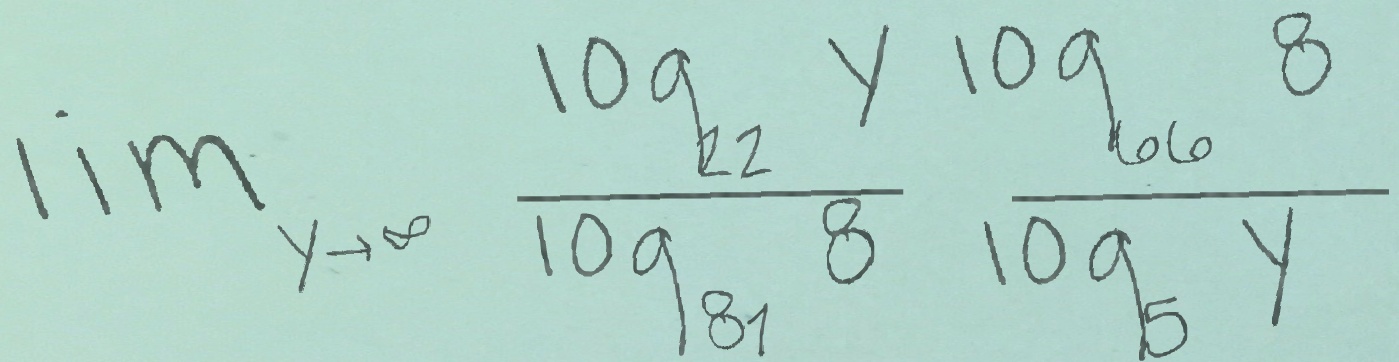 lim_{y→∞} \frac{log_{22} y}{log_{81} 8} \frac{log_{66} 8}{log_{5} y}